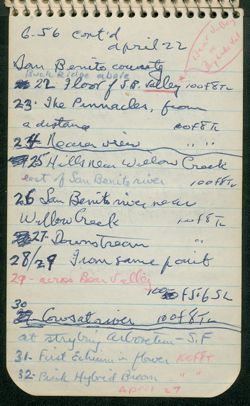 6.56 cont'd
april 22
San Benito county
Buck Ridge above
22 Floor of S.B. Valley
23. The Pinnacles, from
a distance 100 f8 TL
24 Nearer view " "
25 Hills near Willow Creek
east of San Benito river 100 f8 TL
26 San Benito river near
Willow Creek 100 f8 TL
27 Downstream "
28/29 From same point
29 - across Bear Valley
f5.6 SL
30 Cows at river 100 f8 TL
at strybing arboretum - S.F
31 - First Echium in flower
32 - Pink Hybrid Broom " "
April 27